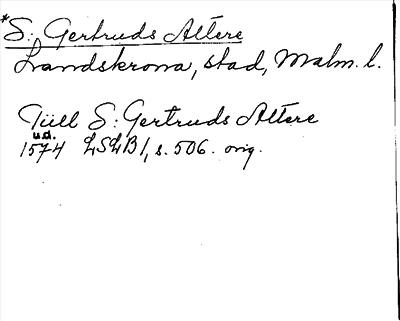 *S: Gertruds Altere
Landskrona, stad, Malm. l.
Till S: Gertruds Altere
u.d.
1574 LSLB 1, s. 506. orig.